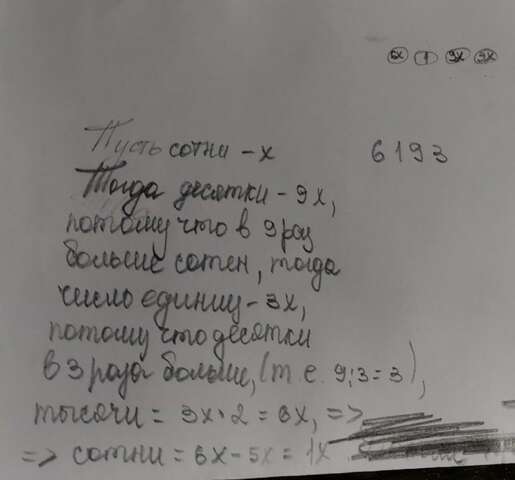 6x 1 9x 3x
Пусть сотни - x 6193
Тогда десятки - 9x,
потому что в 9 раз
больше сотен, тогда
число единиц - 3x,
потому что десятки
в 3 раза больше, (т. е. 9:3=3),
тысячи = 3x·2 = 6x, =>
=> сотни = 6x-5x = 1x